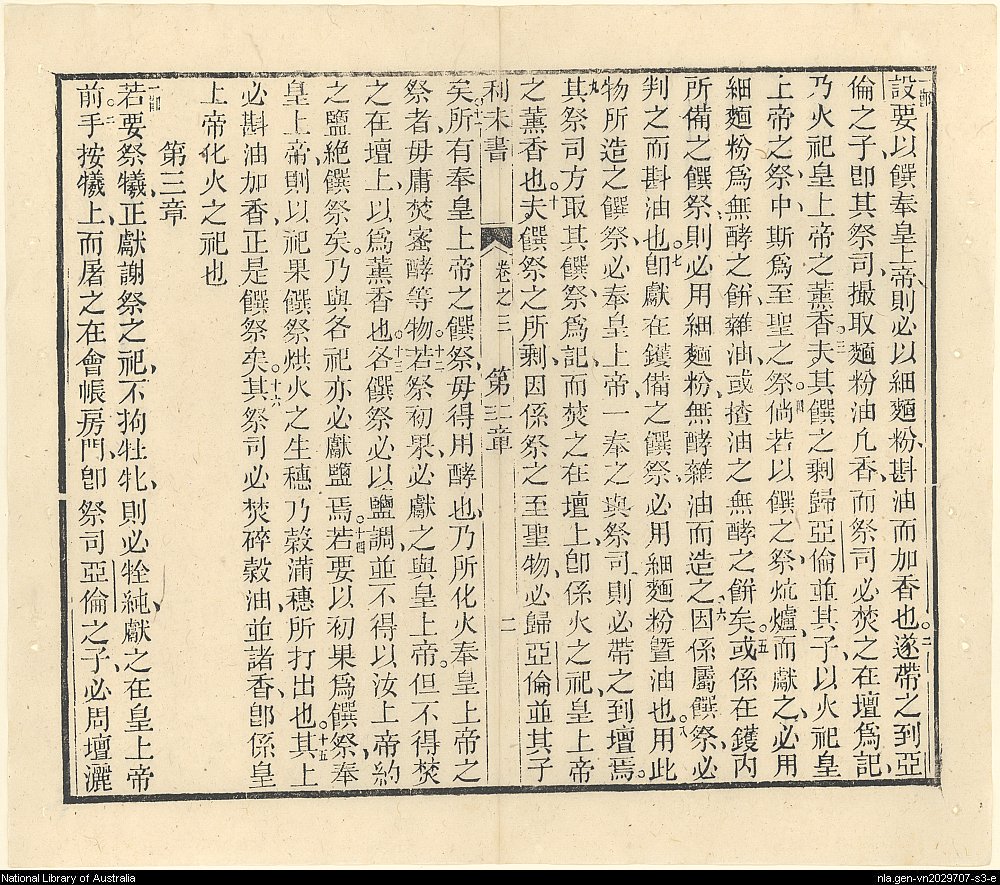 設要以饌奉皇上帝則必以細麵粉斟油而加香也。二遂帶之到亞
倫之子卽其祭司、撮取麵粉油凡香、而祭司必焚之在壇爲記、
乃火祀皇上帝之薰香。三夫其饌之剩歸亞倫並其子、以火祀皇
上帝之祭、中斯爲至聖之祭。四倘若以饌之祭炕爐、而獻之、必用
細麵粉爲無酵之餅、雜油、或揸油之無酵之餅矣。五或係在鑊內
所備之饌祭、則必用細麵粉、無酵雜油而造之、六因係屬饌祭、必
判之而斟油也。七卽獻在鑊備之饌祭、必用細麵粉暨油也。八用此
物所造之饌祭、必奉皇上帝、一奉之與祭司、則必帶之到壇焉。
九其祭司方取其饌祭、爲記、而焚之在壇上、卽係火之祀、皇上帝
之薰香也。十夫饌祭之所剩、因係祭之至聖物、必歸亞倫並其子
利未書 卷之三 第二章 二
第三章
矣。十一所有奉皇上帝之饌祭、毋得用酵也、乃所化火奉皇上帝之
祭者、毋庸焚蜜酵等物。十二若祭初果、必獻之與皇上帝。但不得焚
之在壇上、以爲薰香也。十三各饌祭必以鹽調、並不得以汝上帝、約
之鹽絕饌祭矣。乃與各祀亦必獻鹽焉。十四若要以初果爲饌祭、奉
皇上帝、則以祀果饌祭烘火之生穗乃穀滿穗所打出也。十五其上
必斟油加香、正是饌祭矣。十六其祭司必焚碎穀油、並諸香、卽係皇
上帝化火之祀也
第三章
一節若要祭犧、正獻謝祭之祀、不拘牡牝、則必牷純、獻之在皇上帝
前。二手按犧上、而屠之在會帳房門、卽祭司亞倫之子、必周壇灑